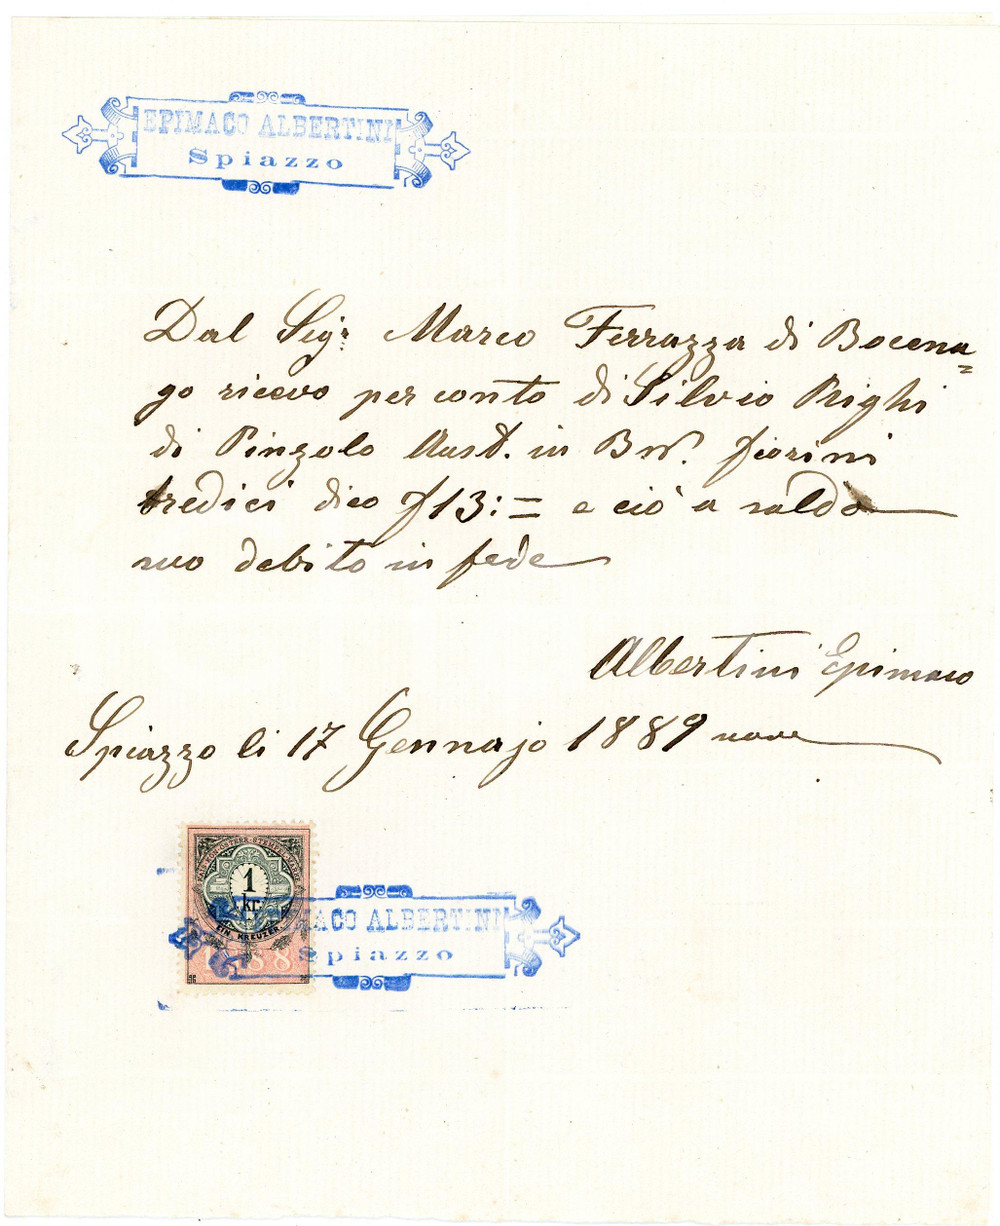 EPIMACO ALBERTINI
Spiazzo
Dal Sigr. Marco Ferrazza di Bocena=
go ricevo per conto di Silvio Righi
di Pinzolo Aust. in BN. fiorini
tredici dico f13:= e ciò a saldo
suo debito in fede
Albertini Epimaco
Spiazzo li 17 Gennajo 1889 nove
KAIS. KÖN. ÖSTERR. STEMPEL-MARKE
1
kr.
EIN KREUZER
1888
MACO ALBERTINI
Spiazzo